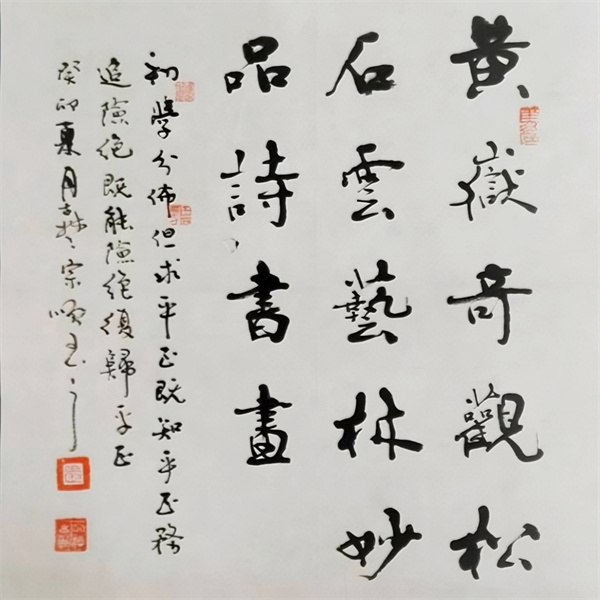 黄嶽奇觀松
石雲藝林妙
品詩書畫
初學分佈但求平正既知平正務
追險絕既能險絕復歸平正
癸卯夏月